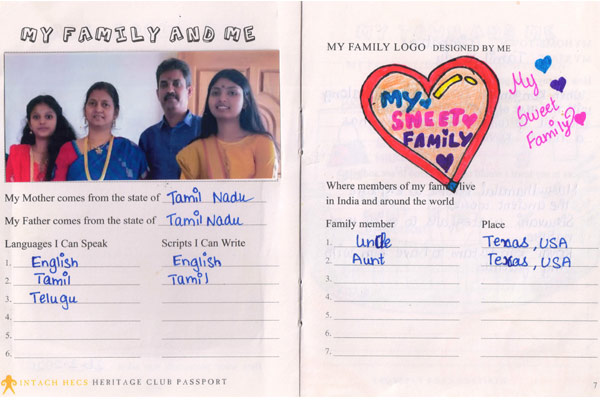 MY FAMILY AND ME
My Mother comes from the state of Tamil Nadu
My Father comes from the state of Tamil Nadu
Languages I Can Speak
Scripts I Can Write
1. English
English
2. Tamil
Tamil
3. Telugu
4.
5.
6.
INTACH HECS HERITAGE CLUB PASSPORT
MY FAMILY LOGO DESIGNED BY ME
MY
SWEET
FAMILY
My
Sweet
Family
Where members of my family live
in India and around the world
Family member
Place
1. Uncle
Texas, USA
2. Aunt
Texas, USA
3.
4.
5.
6.
7.
7